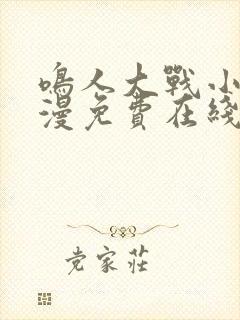 鳴人大戰小
漫免費在綫
党家莊